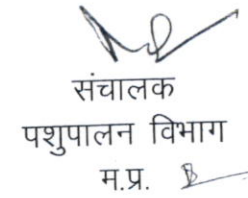 संचालक
पशुपालन विभाग
म.प्र.